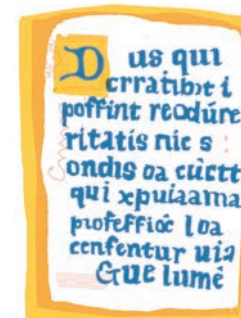 Dus qui
crratibıt i
poffint reodúre
ritatis nic s
ondıs oa cùctt
qui xpuiaama
pıofeffioć loa
cenfentur uia
Gue lumê